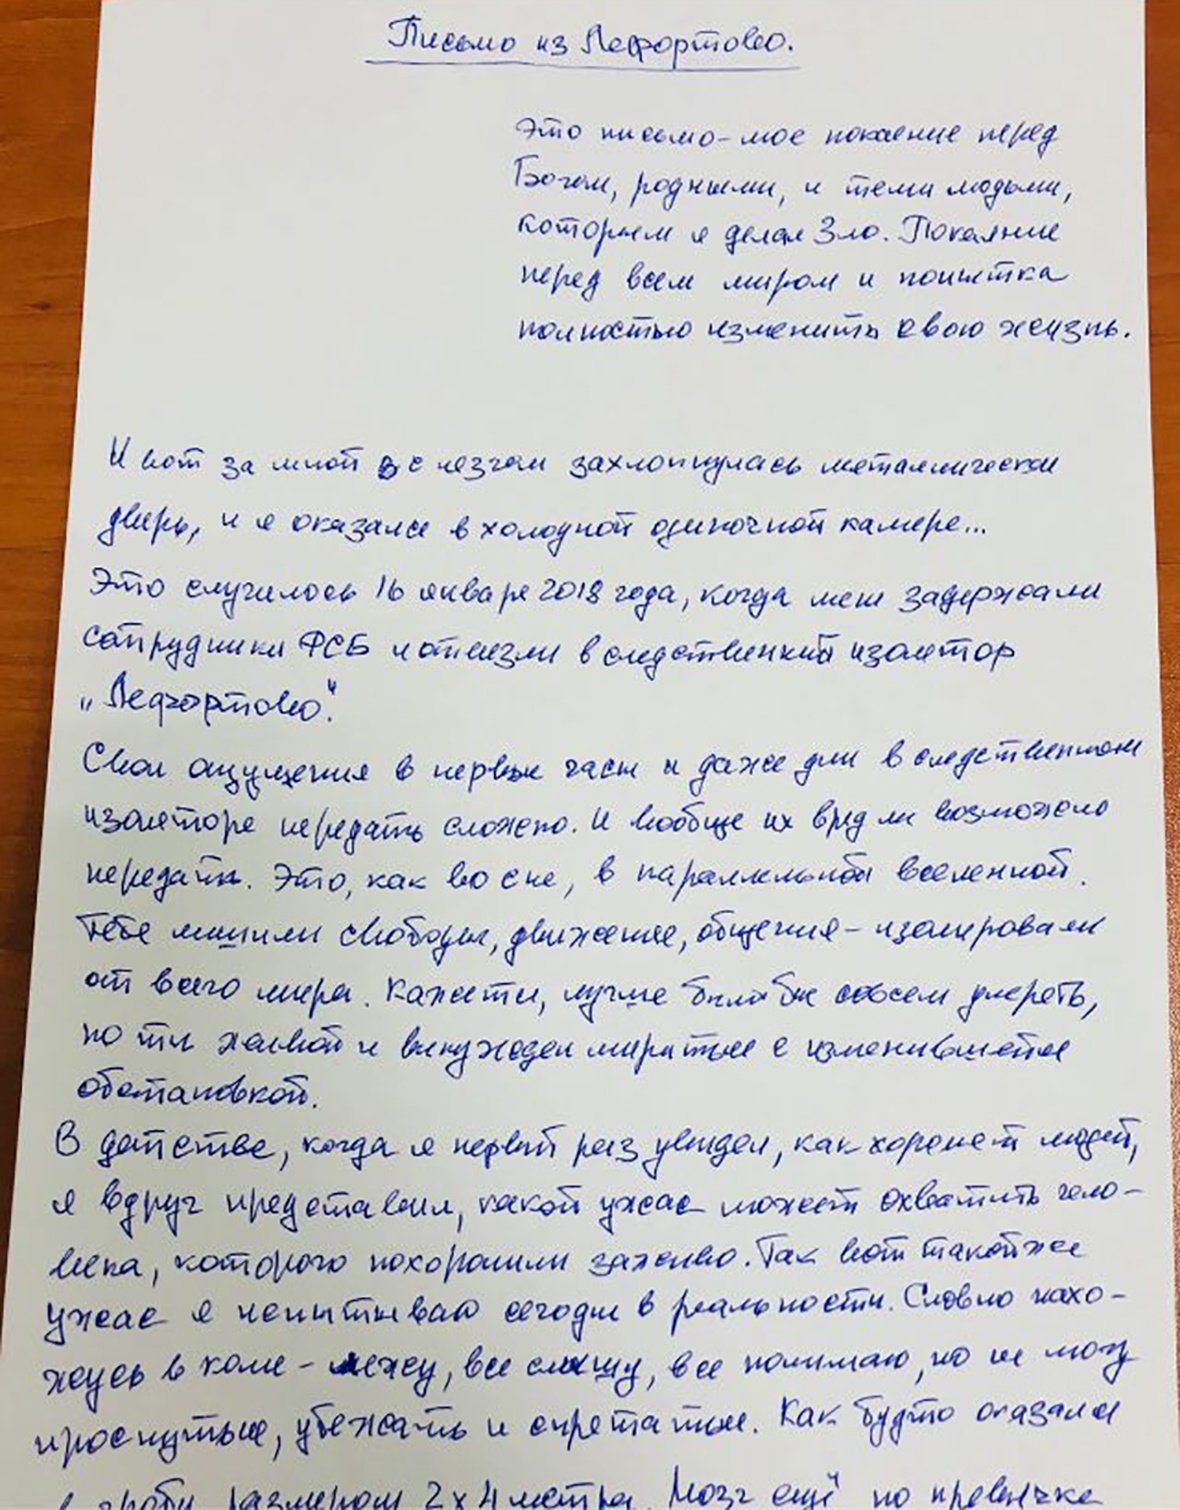 Письмо из Лефортово.
Это письмо-мое покаение перед
Богом, родными, и теми людьми,
которым я делал Зло. Покаяние
перед всем миром и попытка
полностью изменить свою жизнь.
И вот за мной с лезгом захлопнулась металлическая
дверь, и я оказался в холодной одиночной камере...
Это случилось 16 января 2018 года, когда меня задержали
сотрудники ФСБ и отвезли в следственный изолятор
„Лефортово".
Свои ощущения в первые часы и даже дни в следственном
изоляторе передать сложно. И вообще их вряд ли возможно
передать. Это, как во сне, в параллельной вселенной.
Тебя лишили свободы, движение, общения - изолировали
от всего мира. Кажется, лучше было бы совсем умереть,
но ты живой и вынужден мириться с изменившейся
обстановкой.
В детстве, когда я первый раз увидел, как хоронят людей,
я вдруг представил, какой ужас может охватить чело-
века, которого похоронили заживо. Так вот такой же
ужас я испытываю сегодня в реальности. Словно нахо-
жусь в коме - лежу, все слышу, все понимаю, но не могу
проснуться, убежать и спрятаться. Как будто оказался
в гробу размером 2х4 метра. Мозг ещё по привычке